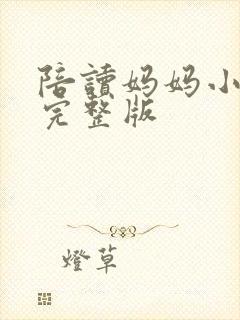 陪讀妈妈小
完整版
燈草